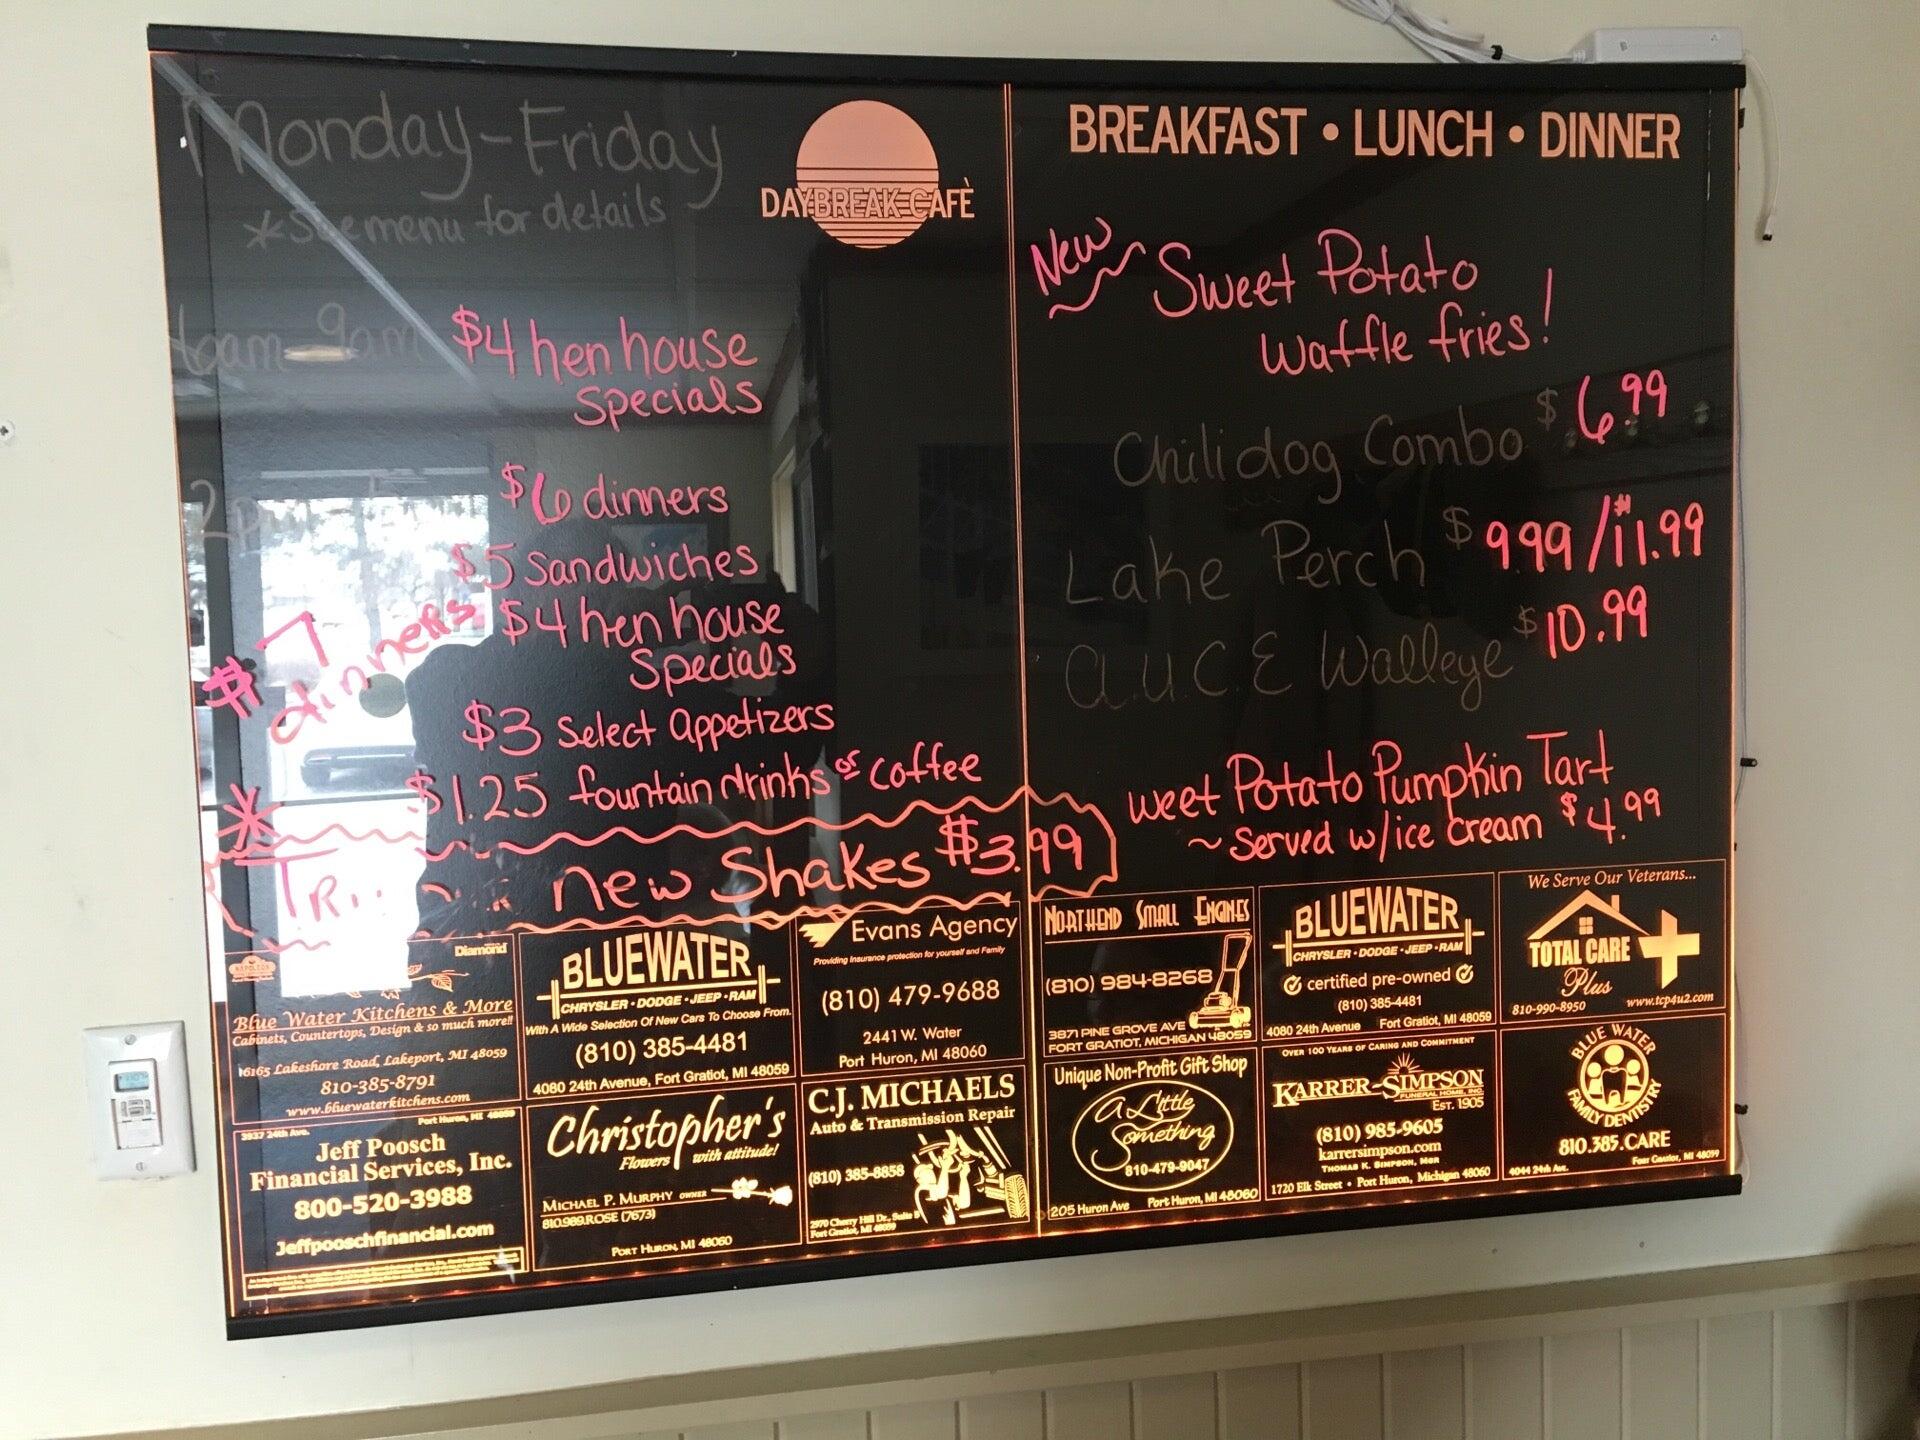 Monday-Friday
*See menu for details
DAYBREAK CAFÈ
6am 9am $4 hen house
Specials
$6 dinners
$5 Sandwiches
$7 dinners
$4 hen house
Specials
$3 Select Appetizers
$1.25 fountain drinks or coffee
* new Shakes $3.99
BREAKFAST • LUNCH • DINNER
New Sweet Potato
Waffle fries!
Chilidog Combo $6.99
Lake Perch $9.99/$11.99
A.U.C.E Walleye $10.99
weet Potato Pumpkin Tart
~ Served w/ice cream $4.99
NAPOLEON
Diamond
Blue Water Kitchens & More
Cabinets, Countertops, Design & so much more!!
6165 Lakeshore Road, Lakeport, MI 48059
810-385-8791
www.bluewaterkitchens.com
BLUEWATER
CHRYSLER • DODGE • JEEP • RAM
With A Wide Selection Of New Cars To Choose From.
(810) 385-4481
4080 24th Avenue, Fort Gratiot, MI 48059
Evans Agency
Providing Insurance protection for yourself and Family
(810) 479-9688
2441 W. Water
Port Huron, MI 48060
NORTHEND SMALL ENGINES
(810) 984-8268
3871 PINE GROVE AVE
FORT GRATIOT, MICHIGAN 48059
BLUEWATER
CHRYSLER • DODGE • JEEP • RAM
certified pre-owned
(810) 385-4481
4080 24th Avenue Fort Gratiot, MI 48059
We Serve Our Veterans...
TOTAL CARE
Plus
810-990-8950 www.tcp4u2.com
3937 24th Ave. Port Huron, MI 48059
Jeff Poosch
Financial Services, Inc.
800-520-3988
Jeffpooschfinancial.com
Christopher's
Flowers with attitude!
MICHAEL P. MURPHY OWNER
810.989.ROSE (7673)
PORT HURON, MI 48060
C.J. MICHAELS
Auto & Transmission Repair
(810) 385-8858
2970 Cherry Hill Dr., Suite
Fort Gratiot, MI 48059
Unique Non-Profit Gift Shop
A Little
Something
810-479-9047
205 Huron Ave Port Huron, MI 48060
OVER 100 YEARS OF CARING AND COMMITMENT
KARRER-SIMPSON
FUNERAL HOME, INC.
EST. 1905
(810) 985-9605
karrersimpson.com
THOMAS K. SIMPSON, MGR
1720 Elk Street • Port Huron, Michigan 48060
BLUE WATER
FAMILY DENTISTRY
810.385.CARE
4044 24th Ave. Fort Gratiot, MI 48059